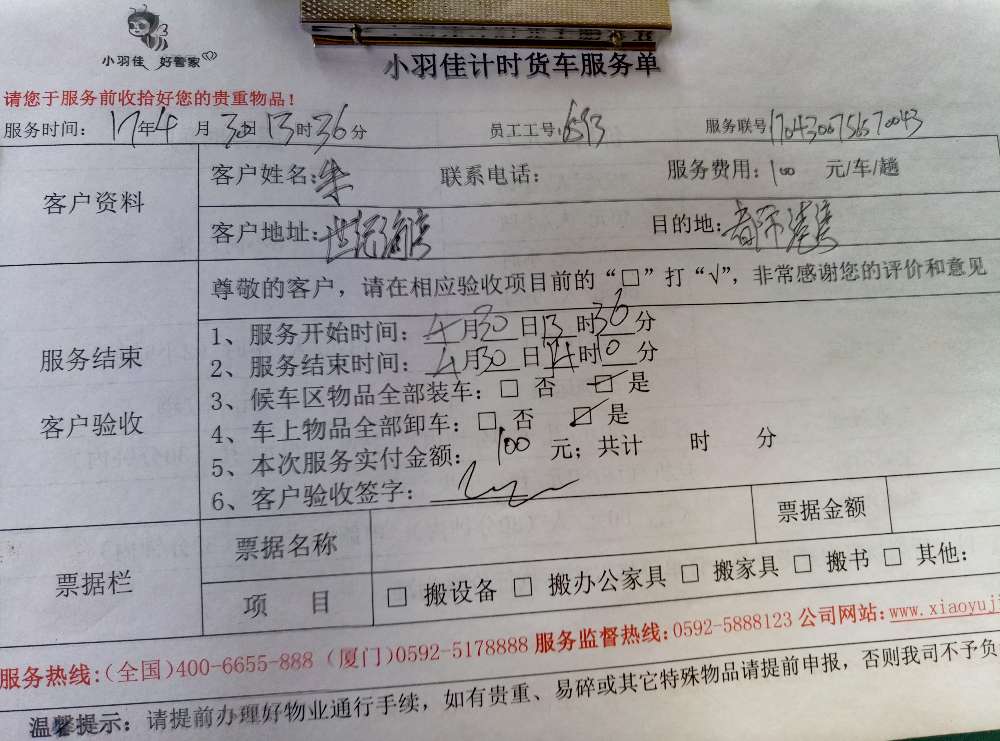 小羽佳 好管家
小羽佳计时货车服务单
请您于服务前收拾好您的贵重物品！
服务时间： 17年4月30日13时36分 员工工号： 服务联号
客户资料
客户姓名：朱 联系电话： 服务费用：100 元/车/趟
客户地址： 目的地：
尊敬的客户，请在相应验收项目前的“□”打“√”，非常感谢您的评价和意见
服务结束
客户验收
1、服务开始时间：4月30日13时36分
2、服务结束时间：4月30日14时10分
3、候车区物品全部装车：□ 否 ☑ 是
4、车上物品全部卸车：□ 否 ☑ 是
5、本次服务实付金额：100 元；共计 时 分
6、客户验收签字：
票据栏
票据名称 票据金额
项 目 □ 搬设备 □ 搬办公家具 □ 搬家具 □ 搬书 □ 其他：
服务热线：（全国）400-6655-888（厦门）0592-5178888 服务监督热线：0592-5888123 公司网站：www.xiaoyuji
温馨提示：请提前办理好物业通行手续，如有贵重、易碎或其它特殊物品请提前申报，否则我司不予负